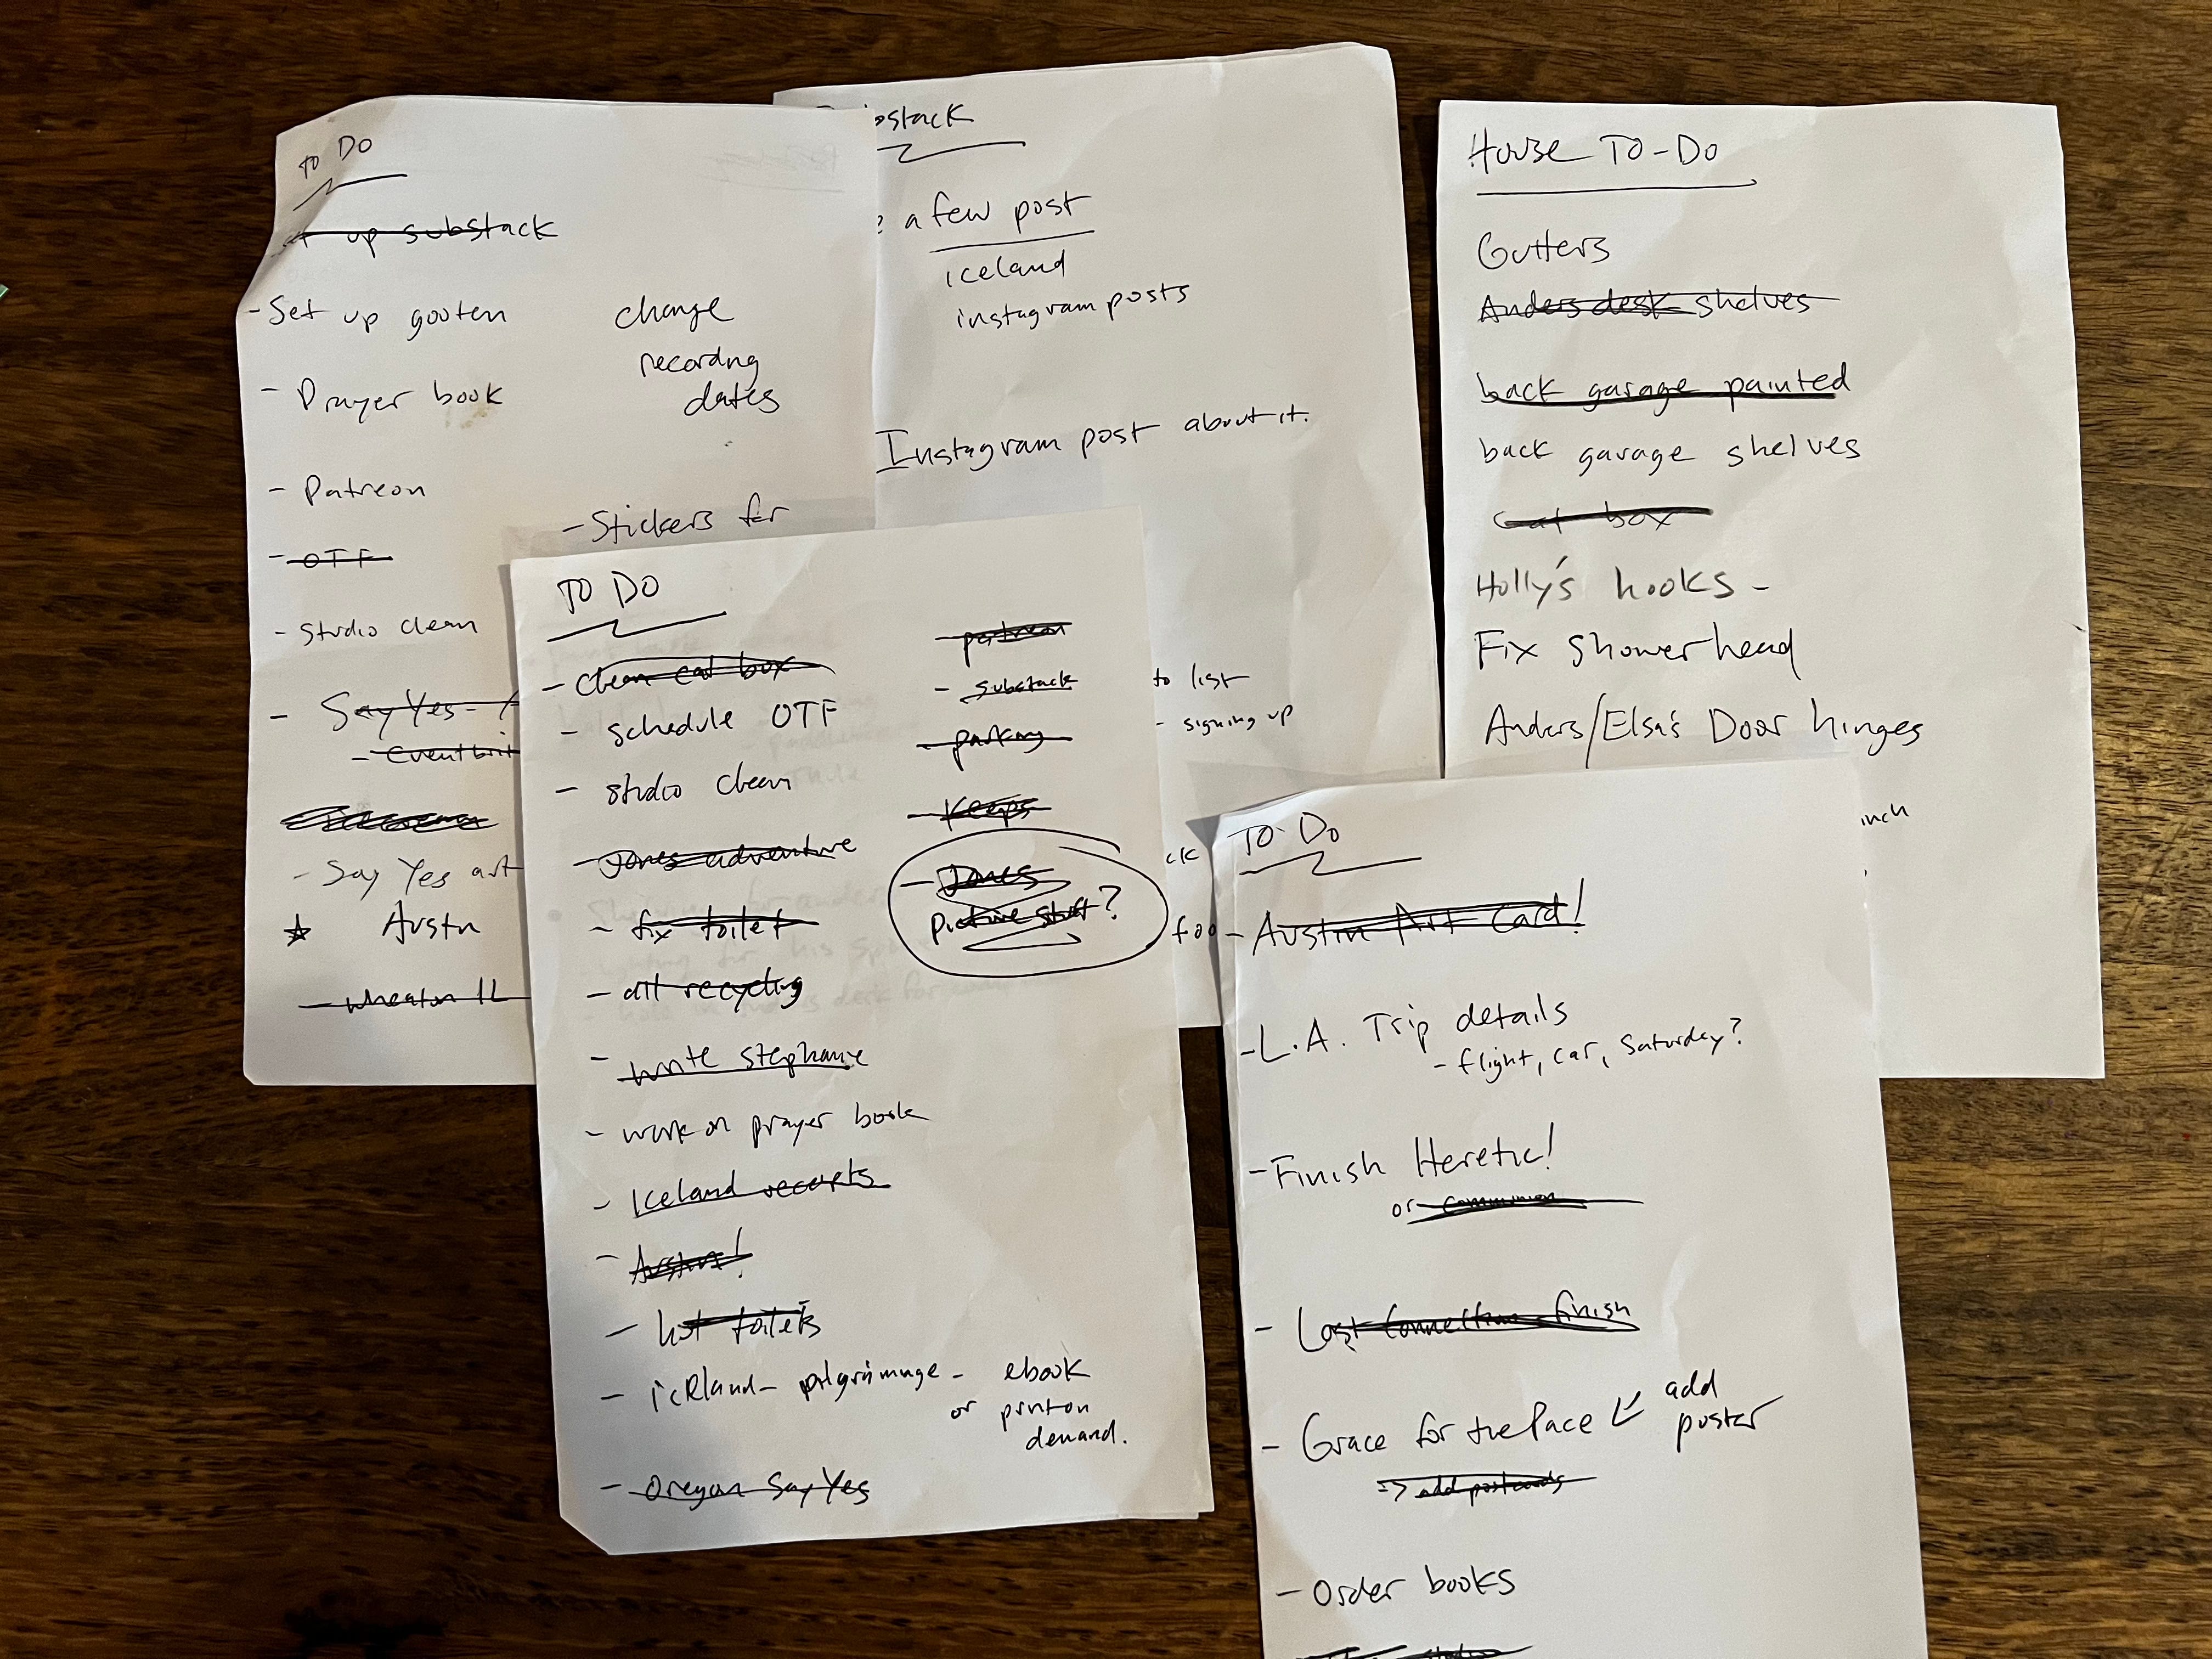 TO DO
up substack
- Set up gooten
- Prayer book
- Patreon
- OTF
- Studio clean
- Say Yes -
- Eventbrit
- Say Yes art
Austn
- wheaton IL
change
recordng
dates
- Stickers for
ostack
a few post
iceland
instagram posts
Instagram post about it.
to list
- signing up
ck
foo
House TO-DO
Gutters
Anders desk shelves
back garage painted
back garage shelves
Cat box
Holly's hooks -
Fix showerhead
Anders/Elsa's Door hinges
inch
TO DO
- clean cat box
- schedule OTF
- studio clean
- Jones adventure
- fix toilet
- all recycling
- write stephanie
- work on prayer book
- Iceland
- Austin!
- toilets
- iceland - pilgrimage - ebook
or print on
demand.
- Oregon Say Yes
- patreon
- substack
- parking
- Keeps
- Jones
picture stuff?
TO DO
- Austin Art Card!
- L.A. Trip details
- flight, car, Saturday?
- Finish Heretic!
or communion
- Last Connection finish
- Grace for the Pace
add
poster
=> add postcards
- Order books